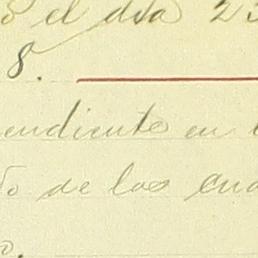 el dia 23
8.
endiente en
to de los cua
o.